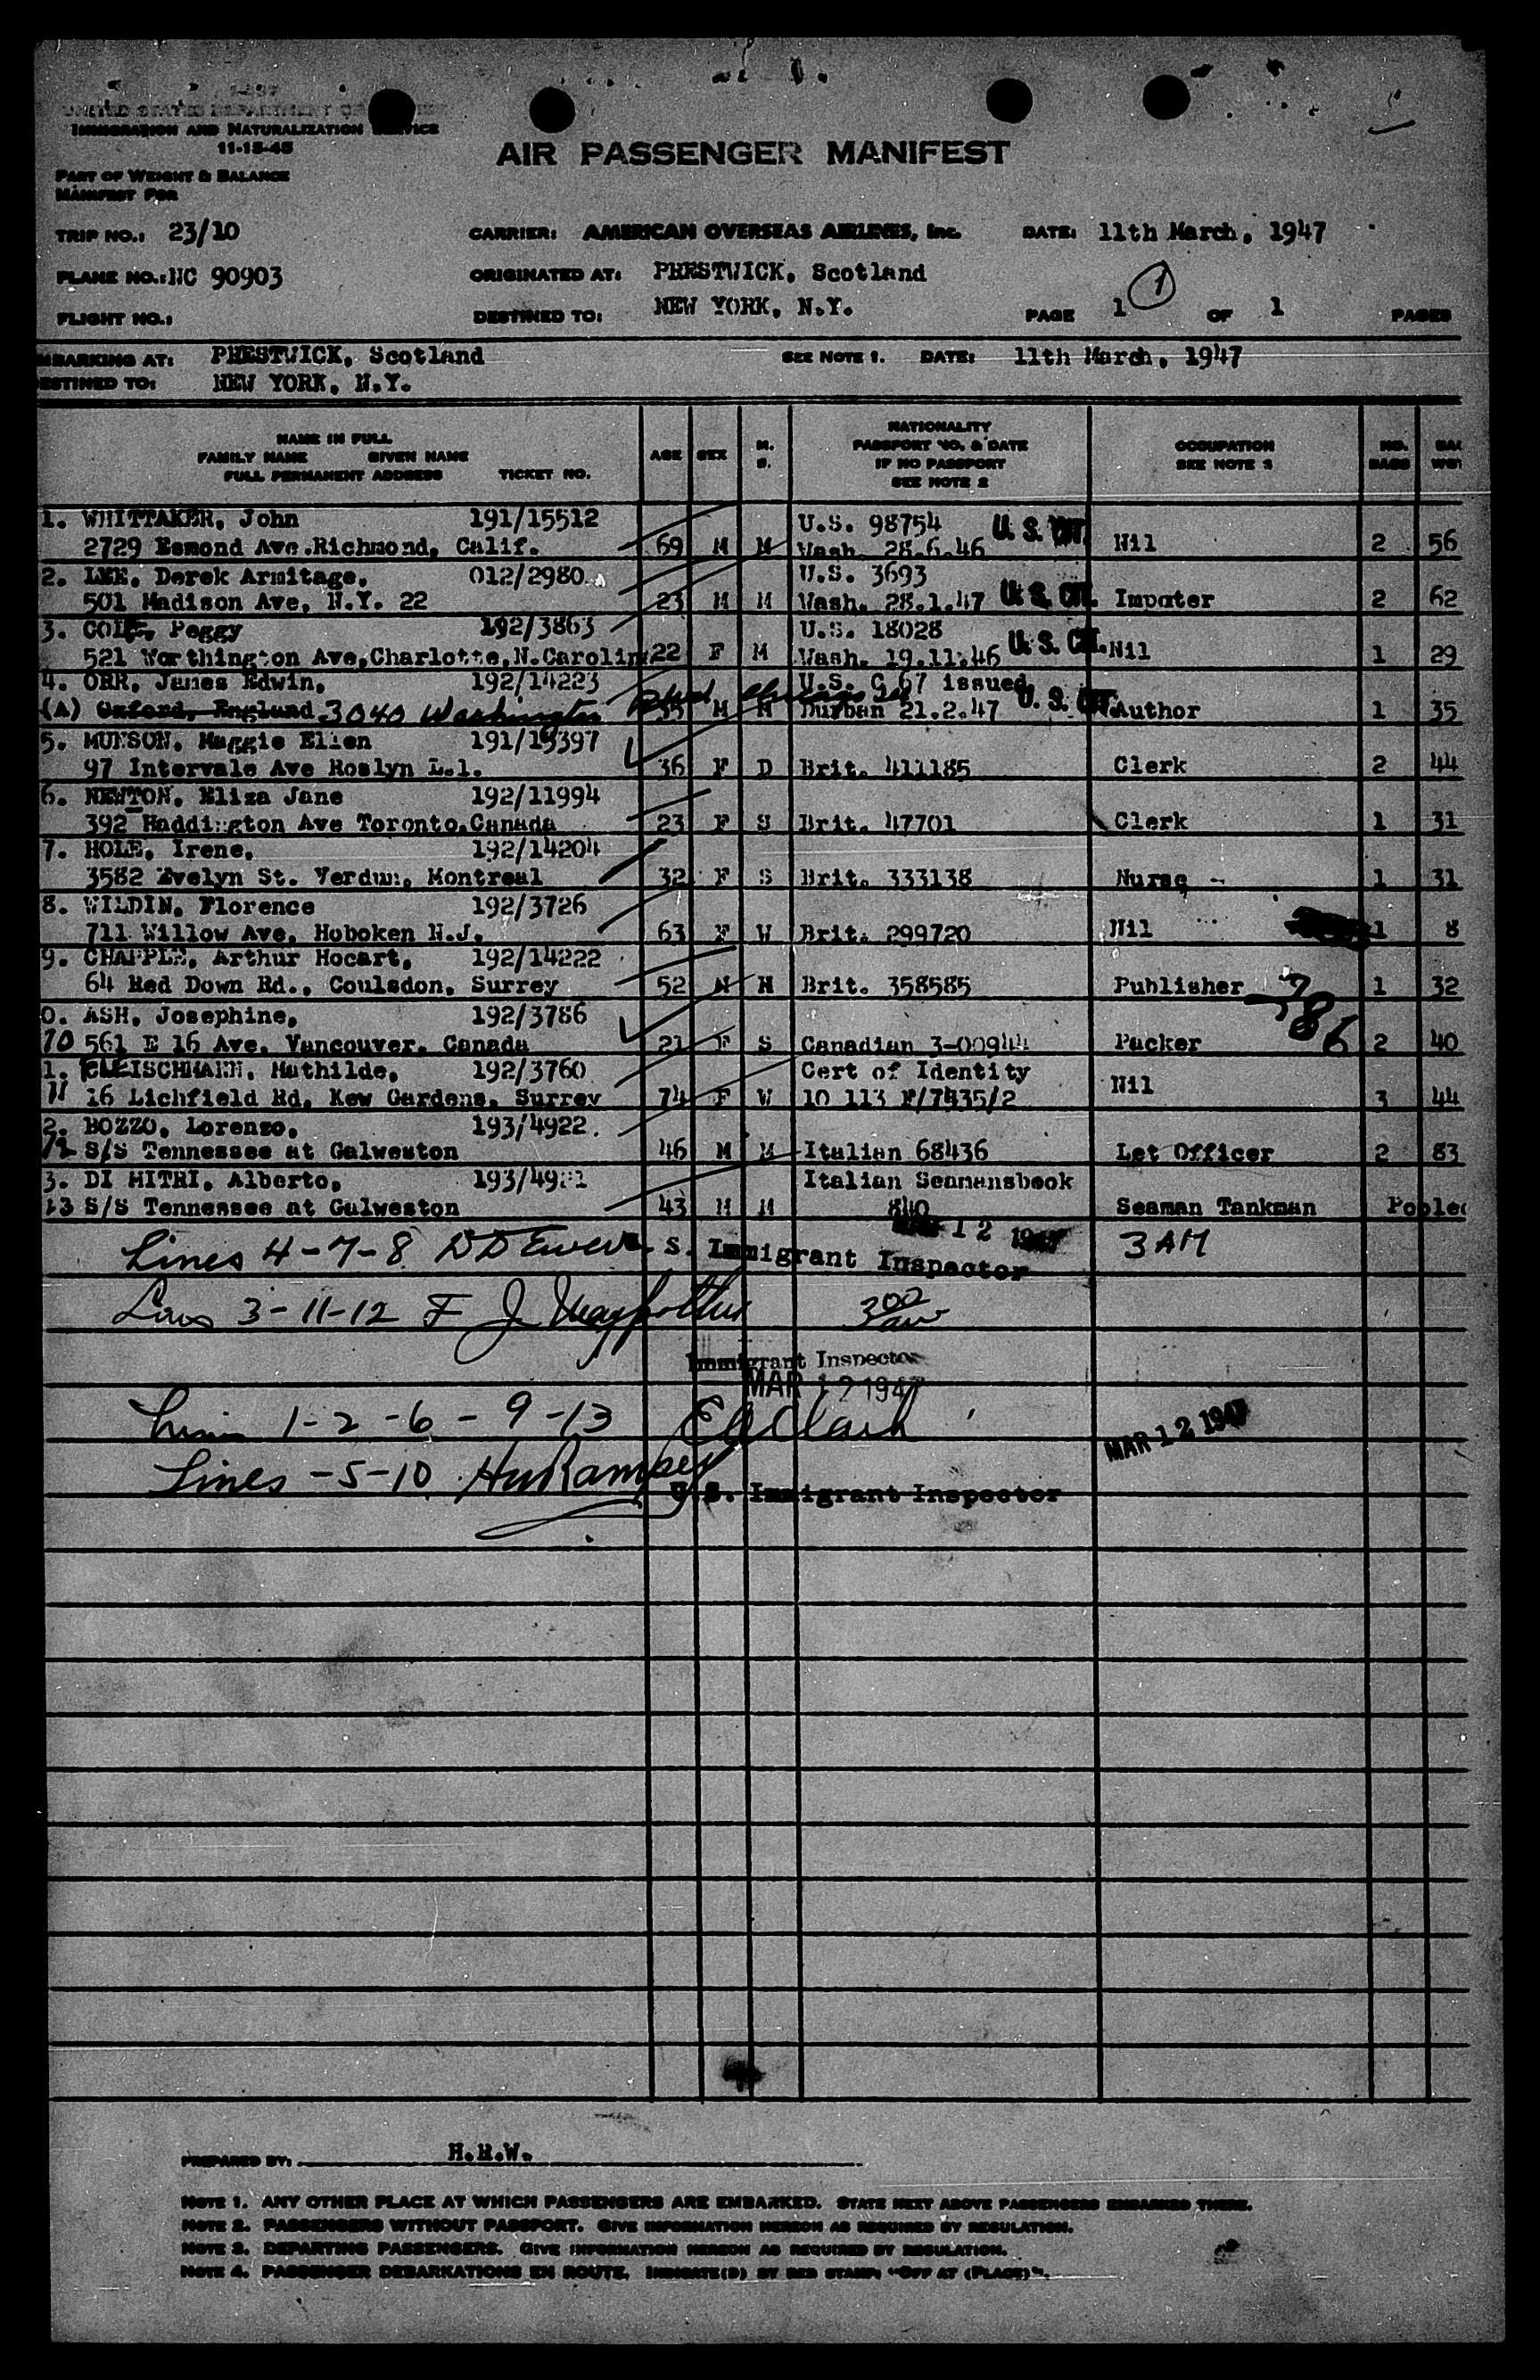 UNITED STATES DEPARTMENT OF
IMMIGRATION AND NATURALIZATION SERVICE
11-15-45
PART OF WEIGHT & BALANCE
MANIFEST FOR
AIR PASSENGER MANIFEST
TRIP NO.: 23/10 CARRIER: AMERICAN OVERSEAS AIRLINES, Inc. DATE: 11th March, 1947
PLANE NO.: NC 90903 ORIGINATED AT: PRESTWICK, Scotland
FLIGHT NO.: DESTINED TO: NEW YORK, N.Y. PAGE 1 (1) OF 1 PAGES
MBARKING AT: PRESTWICK, Scotland SEE NOTE 1. DATE: 11th March, 1947
ESTINED TO: NEW YORK, N.Y.
NAME IN FULL
FAMILY NAME GIVEN NAME
FULL PERMANENT ADDRESS TICKET NO.
AGE SEX M. S.
NATIONALITY
PASSPORT NO. & DATE
IF NO PASSPORT
SEE NOTE 2
OCCUPATION
SEE NOTE 3
NO. BAGS
BAG WGT
1. WHITTAKER, John 191/15512 U.S. 98754 U. S. CIT.
2729 Esmond Ave.Richmond, Calif. 69 M M Wash. 28.6.46 Nil 2 56
2. LEE, Derek Armitage, 012/2980 U.S. 3693
501 Madison Ave, N.Y. 22 23 M M Wash. 28.1.47 U. S. CIT. Impoter 2 62
3. COLE, Peggy 192/3863 U.S. 18028
521 Worthington Ave,Charlotte,N.Carolin 22 F M Wash. 19.11.46 U. S. CIT. Nil 1 29
4. ORR, James Edwin, 192/14223 U.S. C 67 issued
(A) Oxford, England 3040 Washington Blvd Chicago 35 M M Durban 21.2.47 U. S. CIT. Author 1 35
5. MUNSON, Maggie Ellen 191/15397
97 Intervale Ave Roslyn L.I. 36 F D Brit. 411185 Clerk 2 44
6. NEWTON, Eliza Jane 192/11994
392 Haddington Ave Toronto,Canada 23 F S Brit. 47701 Clerk 1 31
7. HOLE, Irene, 192/14204
3582 Evelyn St. Verdun, Montreal 32 F S Brit. 333138 Nurse 1 31
8. WILDIN, Florence 192/3726
711 Willow Ave, Hoboken N.J. 63 F W Brit. 299720 Nil 1 8
9. CHAPPLE, Arthur Hocart, 192/14222
64 Red Down Rd., Coulsdon, Surrey 52 M M Brit. 358585 Publisher 1 32
786
0. ASH, Josephine, 192/3786
10 561 E 16 Ave. Vancouver. Canada 21 F S Canadian 3-00944 Packer 2 40
1. FLEISCHMANN, Mathilde, 192/3760 Cert of Identity
11 16 Lichfield Rd, Kew Gardens, Surrey 74 F W 10 113 F/7435/2 Nil 3 44
2. BOZZO, Lorenzo, 193/4922.
12 S/S Tennessee at Galweston 46 M M Italian 68436 Let Officer 2 83
3. DI MITRI, Alberto, 193/4921 Italian Seamansbook
13 S/S Tennessee at Galweston 43 M M 840 Seaman Tankman Pooled
Lines 4-7-8 S. Immigrant Inspector MAR 12 1947 3 AM
Lines 3-11-12 F J 3 00 am
Immigrant Inspector
MAR 12 1947
Lines 1-2-6-9-13 Clark MAR 12 1947
Lines -5-10 Ramsey
U.S. Immigrant Inspector
PREPARED BY: H.R.W.
NOTE 1. ANY OTHER PLACE AT WHICH PASSENGERS ARE EMBARKED. STATE NEXT ABOVE PASSENGERS EMBARKED THERE.
NOTE 2. PASSENGERS WITHOUT PASSPORT. GIVE INFORMATION HEREON AS REQUIRED BY REGULATION.
NOTE 3. DEPARTING PASSENGERS. GIVE INFORMATION HEREON AS REQUIRED BY REGULATION.
NOTE 4. PASSENGER DEBARKATIONS EN ROUTE. INDICATE(D) BY RED STAMP: "OFF AT (PLACE)".